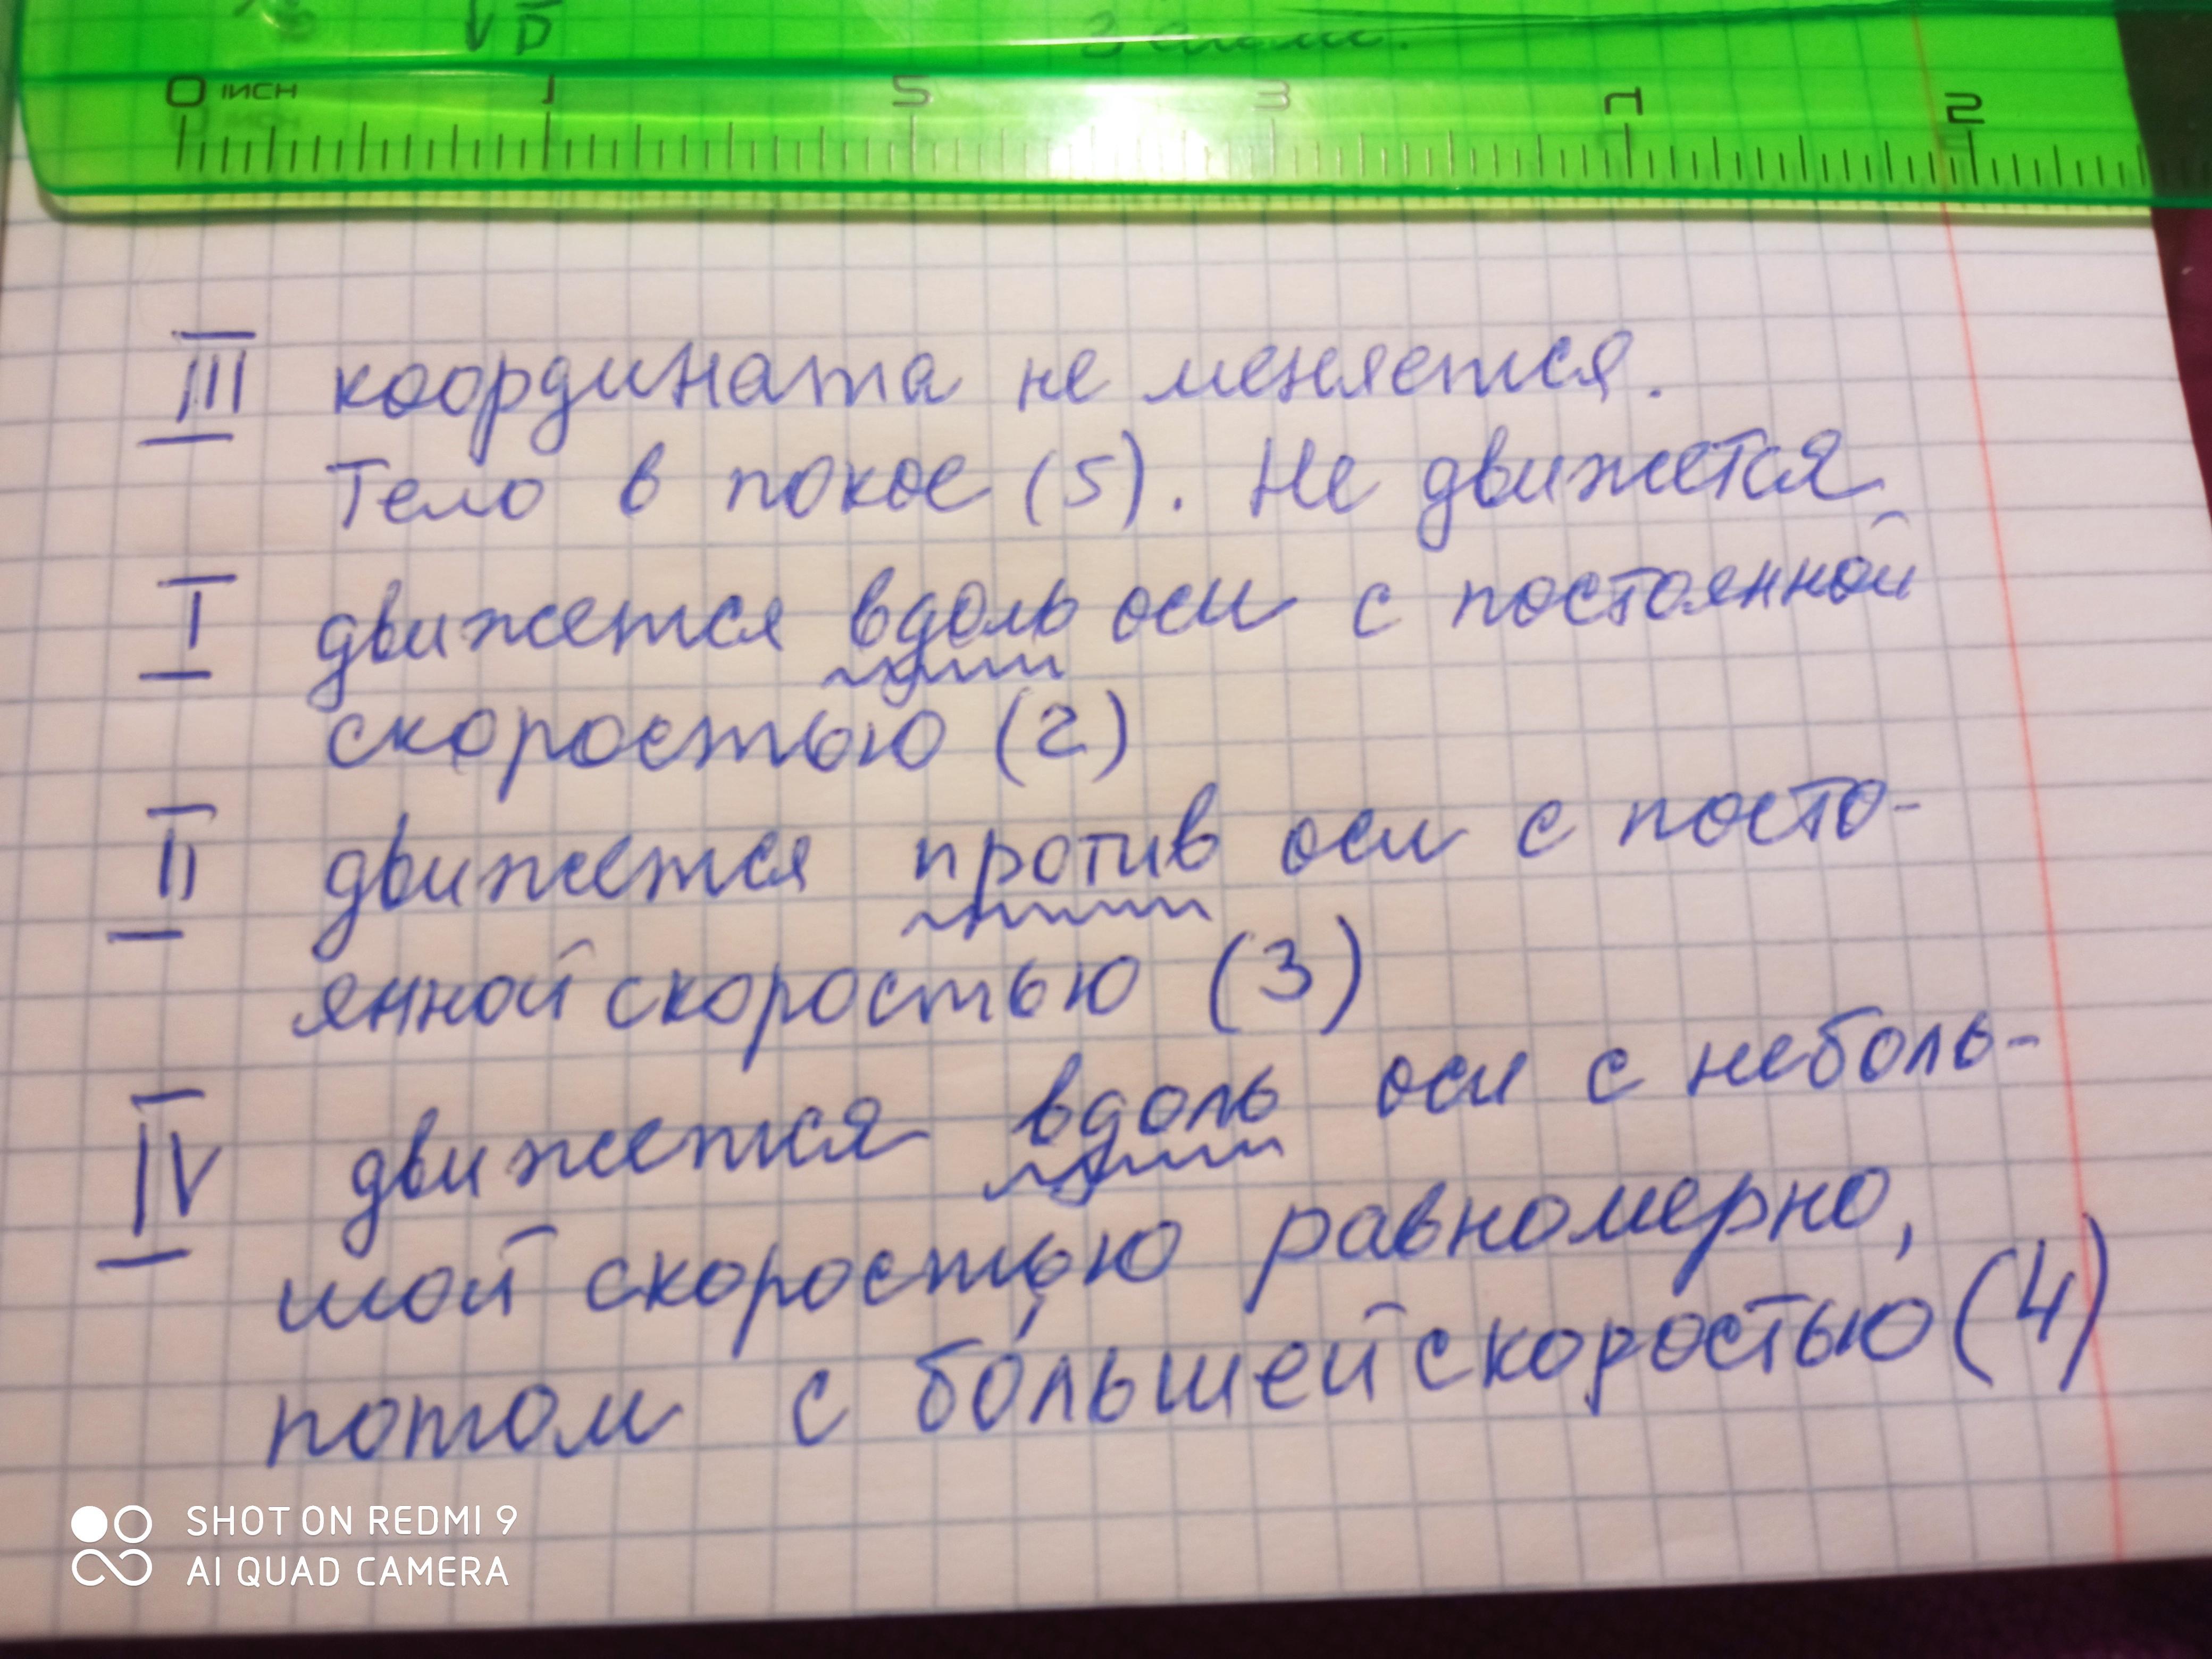 √D
0 INCH 1 2 3 4 5
III координата не меняется.
Тело в покое (5). Не движется
I движется вдоль оси с постоянной
скоростью (2)
II движется против оси с посто-
янной скоростью (3)
IV движется вдоль оси с неболь-
шой скоростью равномерно,
потом с бо́льшей скоростью (4)
SHOT ON REDMI 9
AI QUAD CAMERA